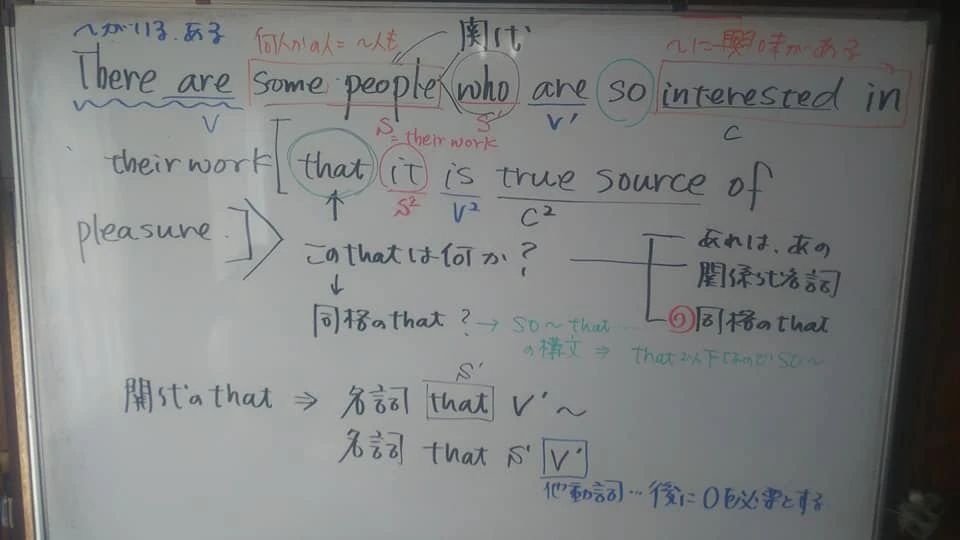 〜がいる、ある
何人かの人=〜人も
関代
〜に興味がある
There are some people who are so interested in
V S S' V' C
= their work
their work [that it is true source of
S² V² C²
pleasure.]
このthatは何か?
あれは、あの
関係代名詞
同格のthat? → so〜that…
の構文 ⇒ that以下
同格のthat
関代のthat ⇒ 名詞 that V'〜
S'
名詞 that S' V'
他動詞…後にOを必要とする